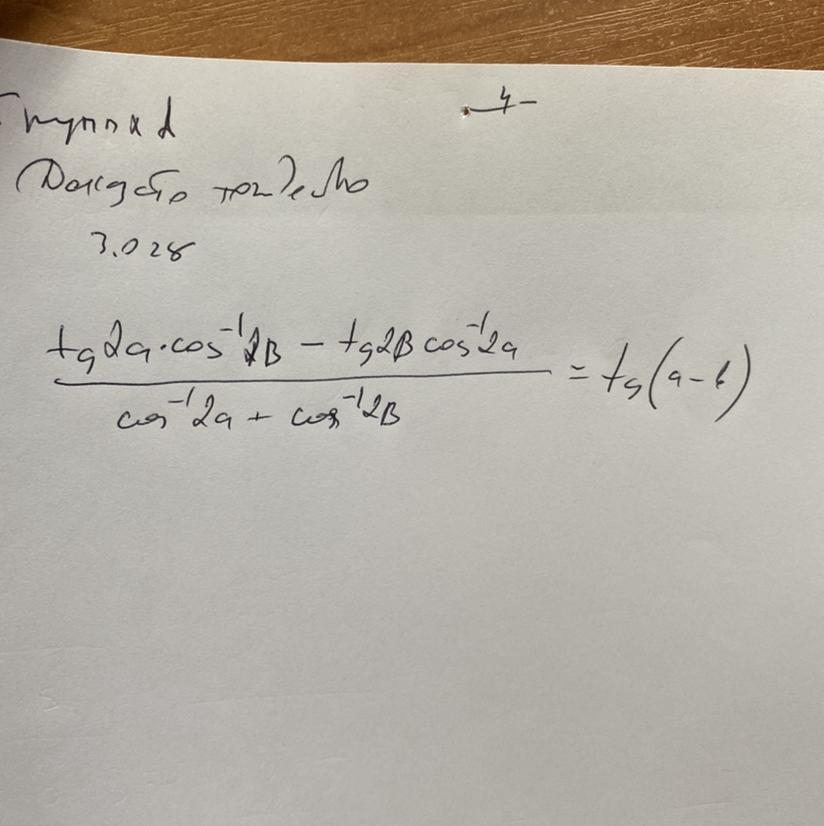 Группа А
- 4 -
Доказать тождество
3.028
tg2a·cos⁻¹2B − tg2B cos⁻¹2a
cos⁻¹2a + cos⁻¹2B
= tg(a-b)